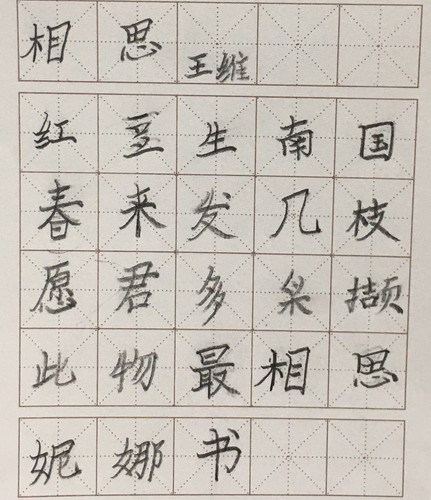 相思 王维
红豆生南国
春来发几枝
愿君多采撷
此物最相思
妮娜书